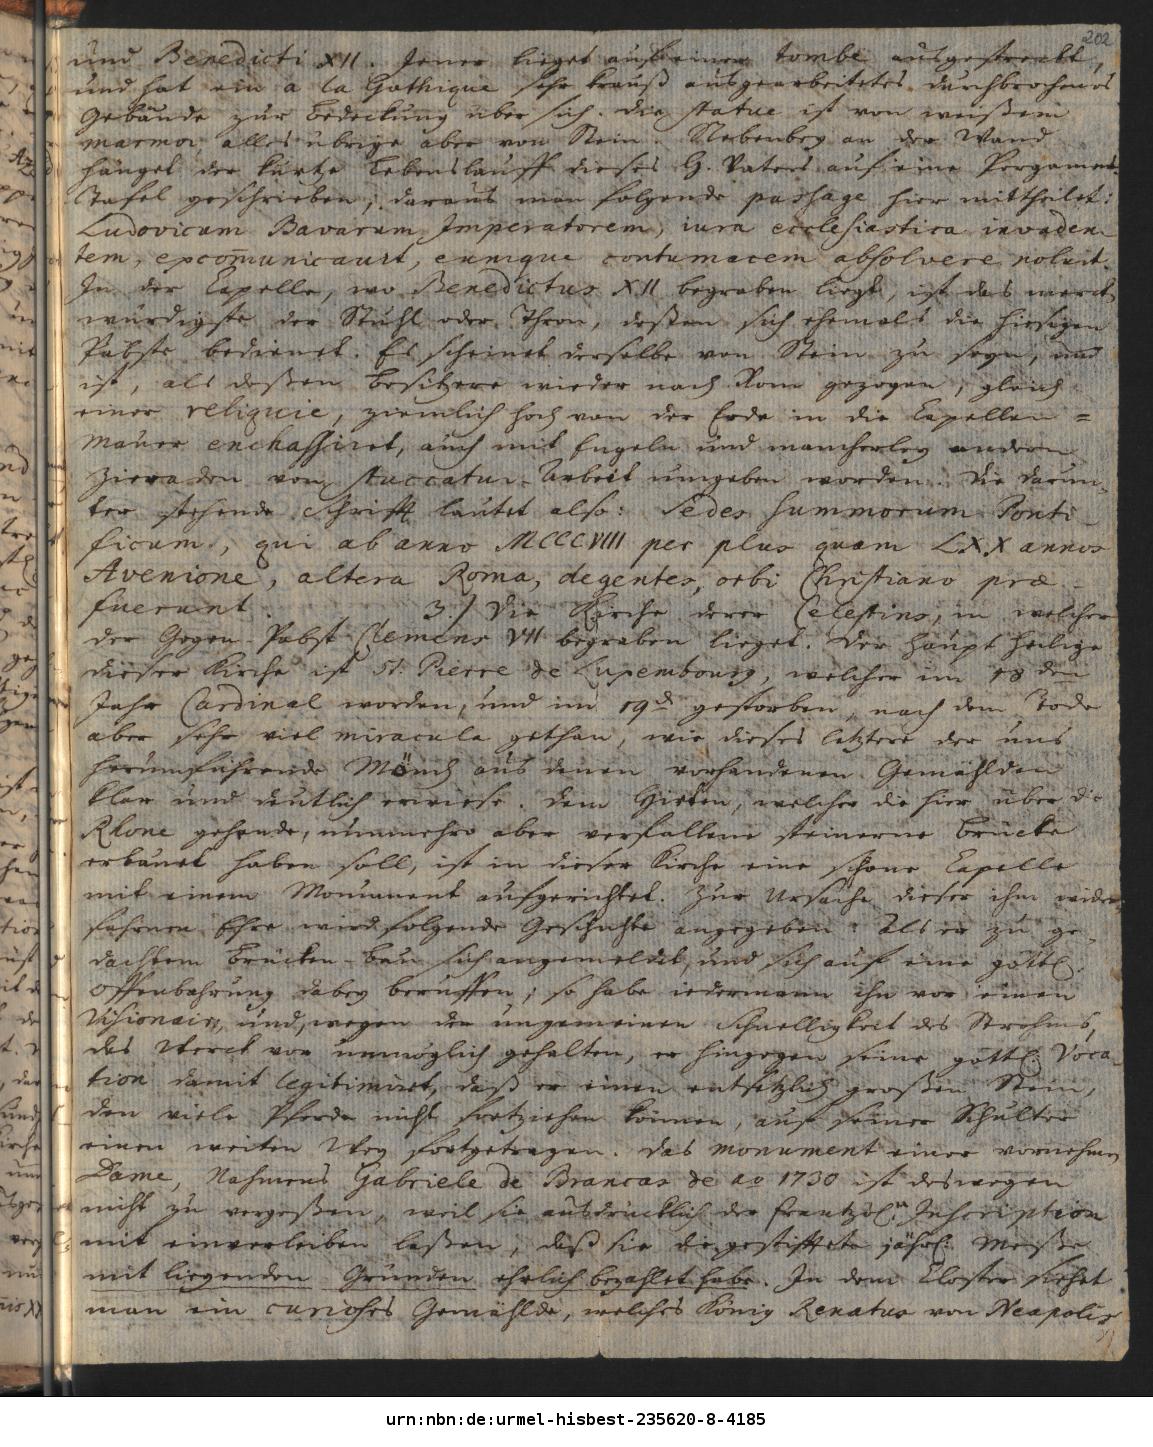 202
und Benedicti XII. Jener lieget auf einer tombe ausgestreckt,
und hat ein a la Gothique sehr krauß ausgearbeitetes durchbrochenes
Gebäude zur bedeckung über sich. die statue ist von weißem
marmor, alles übrige aber von Stein. Nebenbey an der Wand
hänget der kurtze Lebenslauff dieses H. Vaters auf eine Pergament-
Tafel geschrieben, daraus man folgende passage hier mittheilet:
Ludovicum Bavarum Imperatorem, iura ecclesiastica invaden-
tem, excom̄unicavit, eumque contumacem absolvere noluit.
In der Capelle, wo Benedictus XII begraben liegt, ist das merck-
würdigste der Stuhl oder Thron, deßen sich ehemals die hiesigen
Päbste bedienet. Es scheinet derselbe von Stein zu seyn, und
ist, als deßen besitzere wieder nach Rom gezogen, gleich
einer reliquie, ziemlich hoch von der Erde in die Capellen =
Mauer enchassiret, auch mit Engeln und mancherley andern
Zierraden von stuccatur-Arbeit umgeben worden. Die darun-
ter stehende Schrifft lautet also: Sedes summorum Ponti-
ficum, qui ab anno MCCCVIII per plus quam LXX annos
Avenione, altera Roma, degentes, orbi Christiano præ-
fuerunt. 3.) Die Kirche derer Celestins, in welcher
der Gegen-Pabst Clemens VII begraben lieget. Der Haupt heilige
dieser Kirche ist St. Pierre de Luxembourg, welcher im 18den
Jahr Cardinal worden, und im 19d gestorben, nach dem Tode
aber sehr viel miracula gethan, wie dieses letztere der uns
herumführende Mönch aus denen vorhandenen Gemählden
klar und deutlich erwiese. dem Hirten, welcher die hier über die
Rhone gehende, nunmehro aber verfallene steinerne brücke
erbauet haben soll, ist in dieser Kirche eine schöne Capelle
mit einem Monument aufgerichtet. Zur Ursache dieser ihm wider-
fahrnen Ehre wird folgende Geschichte angegeben: Als er zu ge-
dachtem brücken-bau sich angemeldet, und sich auf eine göttl.
Offenbahrung dabey beruffen; so habe iedermann ihn vor einen
Visionair, und, wegen der ungemeinen Schnelligkeit des Strohms,
das Werck vor unmöglich gehalten, er hingegen seine göttl. Voca-
tion damit legitimiret, daß er einen entsetzlich großen Stein,
den viele Pferde nicht fortziehen können, auf seiner Schulter
einen weiten Weg fortgetragen. das monument einer vornehmen
Dame, Nahmens Gabriele de Brancas de ao 1730 ist deswegen
nicht zu vergeßen, weil sie ausdrücklich der frantzösl.n Inscription
mit einverleiben laßen, daß sie die gestifftete jährl. Meße
mit liegenden Gründen ehrlich bezahlet habe. In dem Closter siehet
man ein curioses Gemählde, welches König Renatus von Neapolis
urn:nbn:de:urmel-hisbest-235620-8-4185